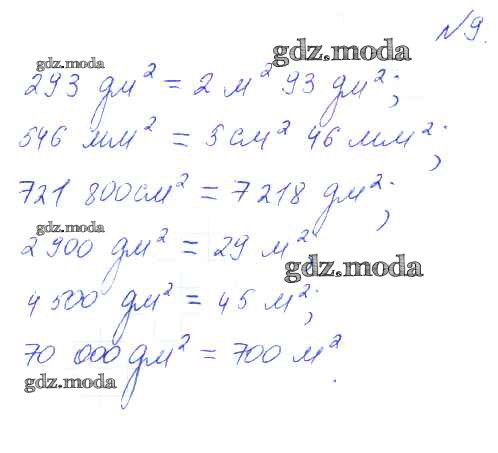 №9.
gdz.moda
gdz.moda
293 дм² = 2 м² 93 дм²;
546 мм² = 5 см² 46 мм²;
721 800 см² = 7218 дм²;
gdz.moda
2 900 дм² = 29 м²;
gdz.moda
4 500 дм² = 45 м²;
70 000 дм² = 700 м².
gdz.moda